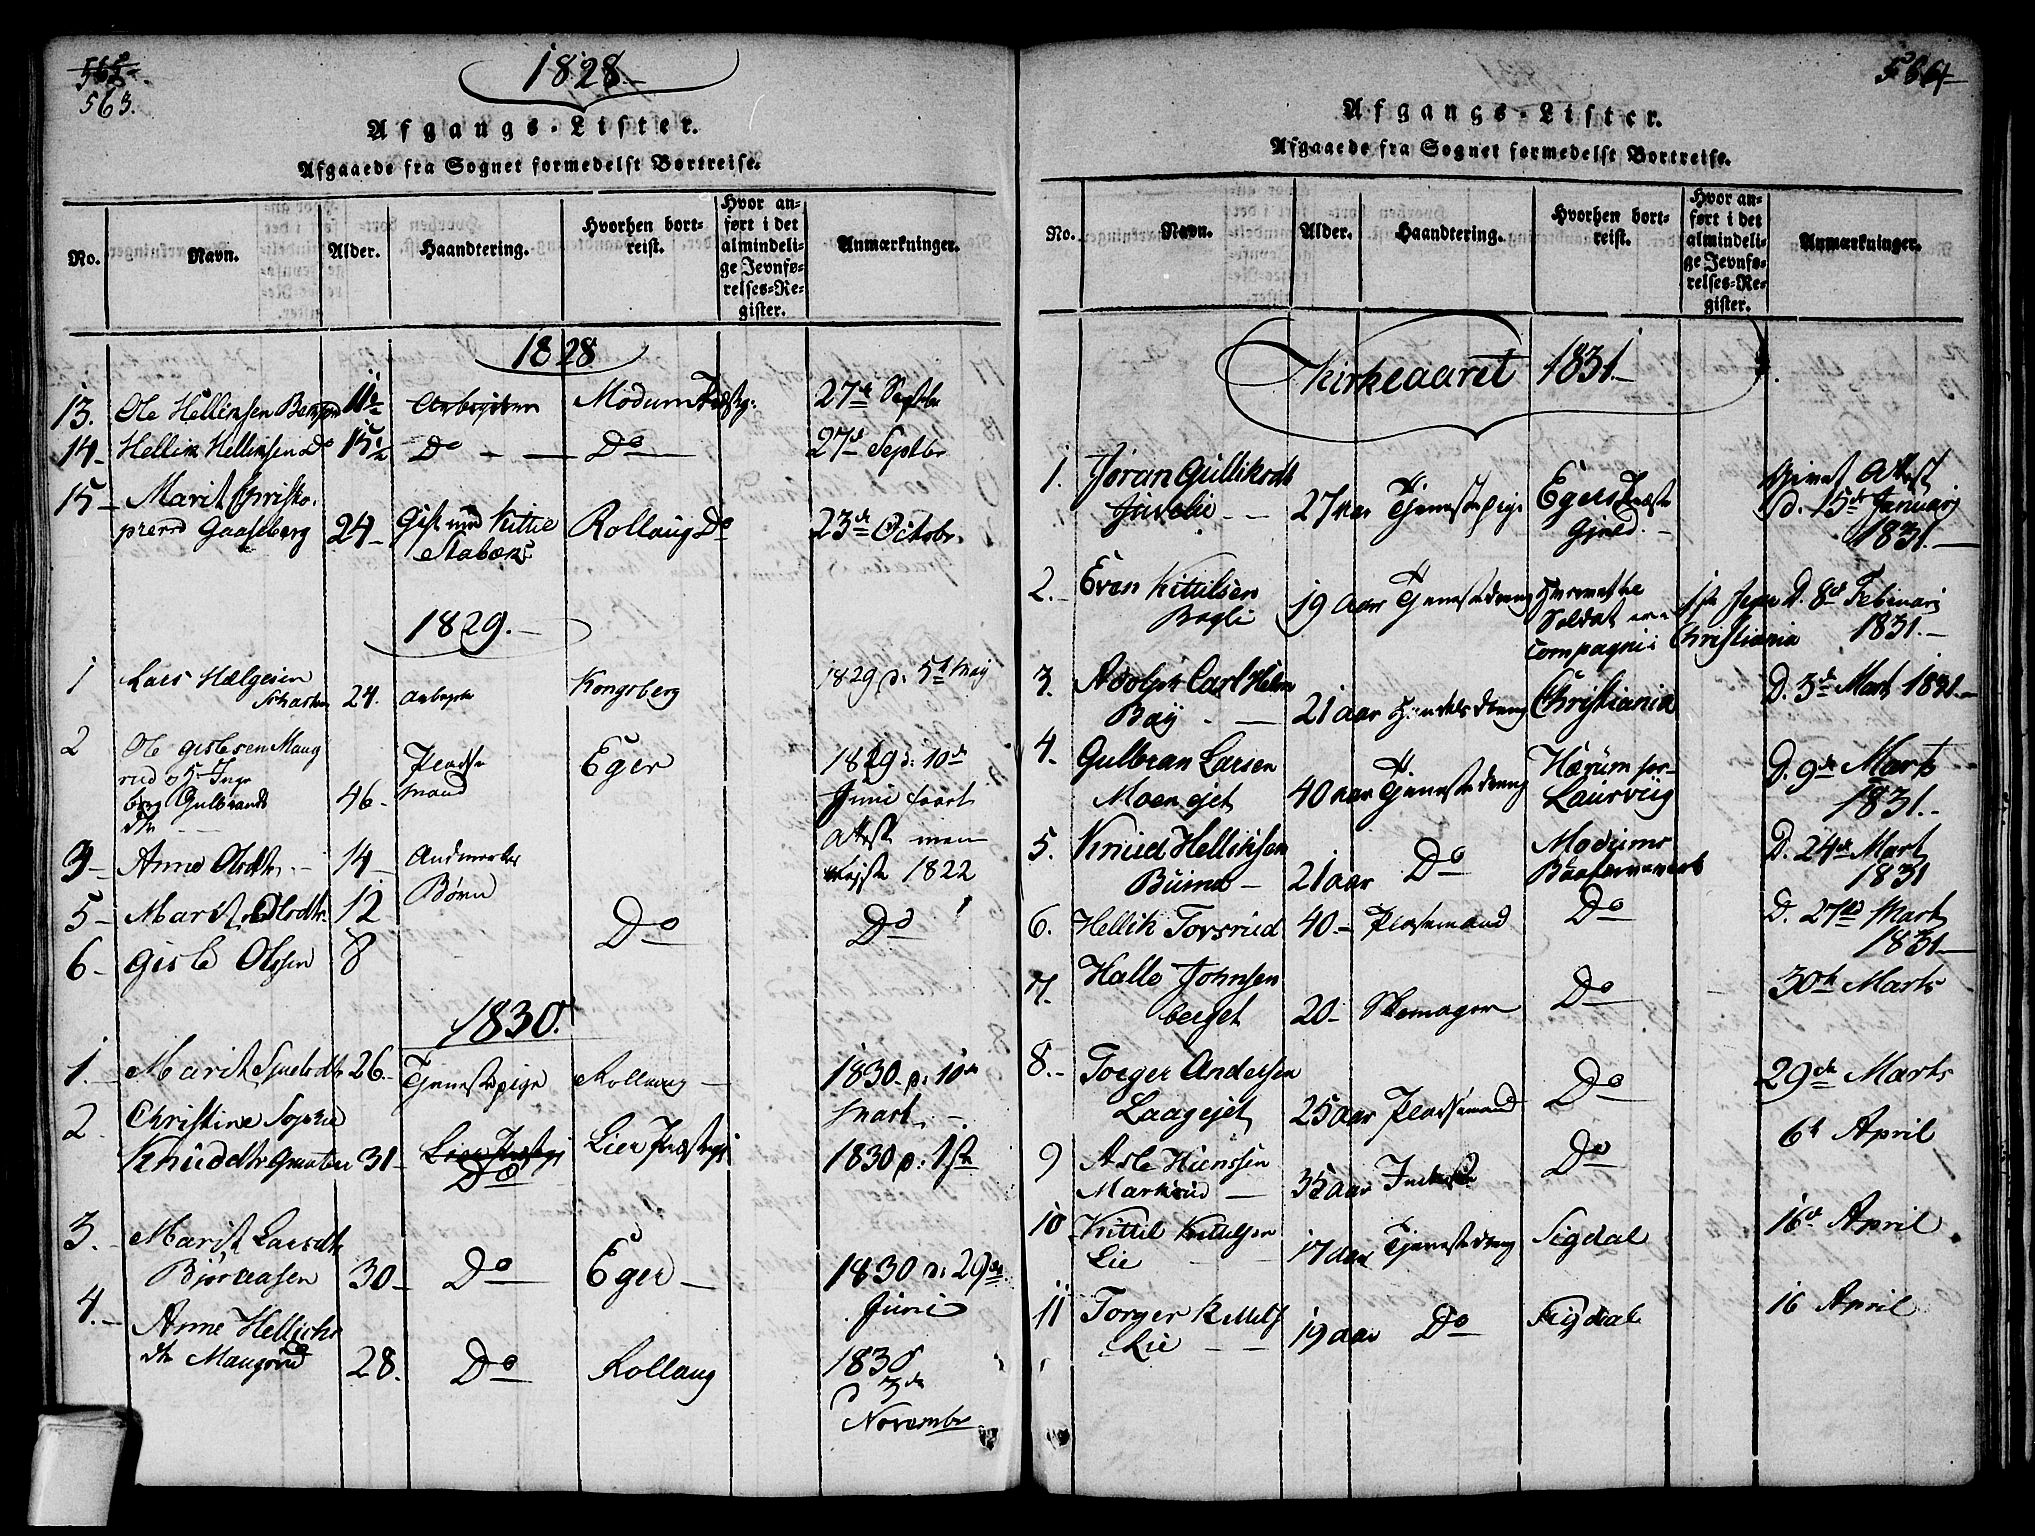 563.
1828.
Afgangs-Lister.
Afgaaede fra Sognet formedelst Bortreise.
No.
Navn.
Alder.
Haandtering.
Hvorhen bort-
reist.
Hvor an-
ført i det
almindeli-
ge Jevnfø-
relses-Re-
gister.
Anmærkninger.
1828
13. Ole Hellimsen 11½ Modum 27de Septbr
14 Hellik Hellimsen Do 15½ Do Do 27de Septbr
15 Marit Christo-
persd Gaasberg 24 Gift med Kittil Rollaug Do 23de Octobr.
Stabæns
1829.
1 Lars Helgesen 24. Kongsberg 1829 d. 5te May
2 Ole Gislesen Maug
rud og Inge
borg Gulbrands
dtr 46 Pladse
mand Eger 1829 d. 10de
Juni
Attest
1822
3 Anne Olsdtr. 14
Børn
5 Marit Olsdtr. 12 Do Do
6 Gisle Olssen 8
1830.
1. Marit 26 Tjenestepige Rollaug 1830 d. 10de
Mart.
2. Christine Sophie
Knudsdtr 31 Do Lier Præstegj 1830 d. 1ste
3. Marit Larsdtr
Bjornaasen 30 Do Eger 1830 d. 29de
Juni
4. Anne Hellichs
dtr Maugrud 28. Do Rollaug 1830
d 3de
Novembr
564
Afgangs-Lister.
Afgaaede fra Sognet formedelst Bortreise.
No.
Navn.
Alder.
Haandtering.
Hvorhen bort-
reist.
Hvor an-
ført i det
almindeli-
ge Jevnfø-
relses-Re-
gister.
Anmærkninger.
Kirkeaaret 1831.
1. Jøran Gulliksdt
27 aar Tjenestepige Egers Præste
Gjeld. Givet Attest
d. 15de Januarj
1831.
2. Even Kittilsen
Bagli 19 Aar Tjenestedreng
Soldat
Compagnie Christiania D. 8de Februarj
1831.
3. Adolph Carl
Bay 21 aar Handelsdreng Christiania D. 3de Mart 1831.
4. Gulbran Larsen
Moen ejet 40 aar Tjenestedreng
Laurvig D. 9de Marts
1831.
5. Knud Helliksen
Buind 21 aar Do Modums
D. 24de Mart
1831
6. Hellik Torsrud 40 Pladsemand Do D. 27de Mart
1831
7. Halle Johnsen
berget 20 Skomager Do 30te Marts
8. Torger Andersen
Laagejet 25 aar Pladsemand Do 29de Marts
9 Asle
Markrud 35 aar Do 6te April
10 Kittil Kittilsen
Lie 17 aar Tjenestedreng Sigdal 16de April
11 Torger Kittils
Lie 19 aar Do Sigdal 16 April